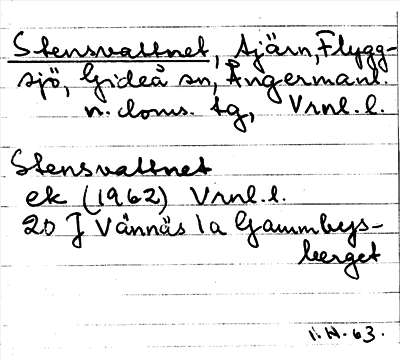 Stensvattnet, tjärn, Flygg-
sjö, Gideå sn, Ångermanl.
n. doms. tg, Vrnl. l.
Stensvattnet
ek (1962) Vrnl. l.
20 J Vännäs 1a Gammbygs-
berget
63